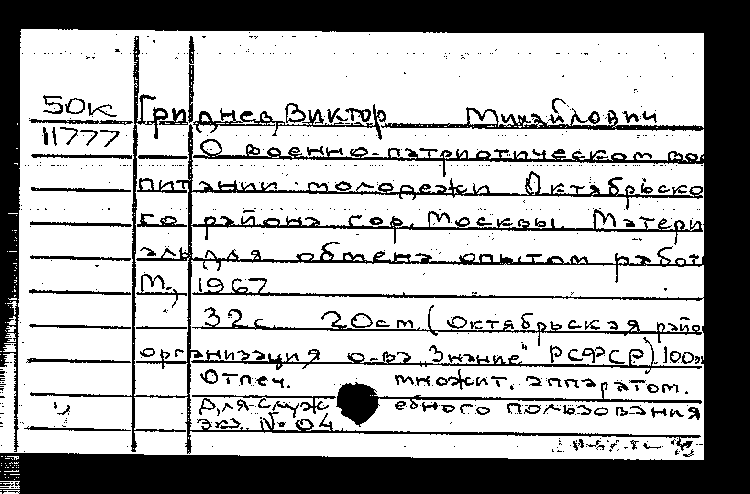 50к Гриднев, Виктор Михайлович
11777 О военно-патриотическом вос
питании молодежи Октябрьско
го района гор. Москвы. Матери
алы для обмена опытом работ
М., 1967
32с. 20см (Октябрьская райо
организация о-ва "Знание" РСФСР). 100э
Отпеч. множит. аппаратом.
Для служебного пользования
экз. № 04